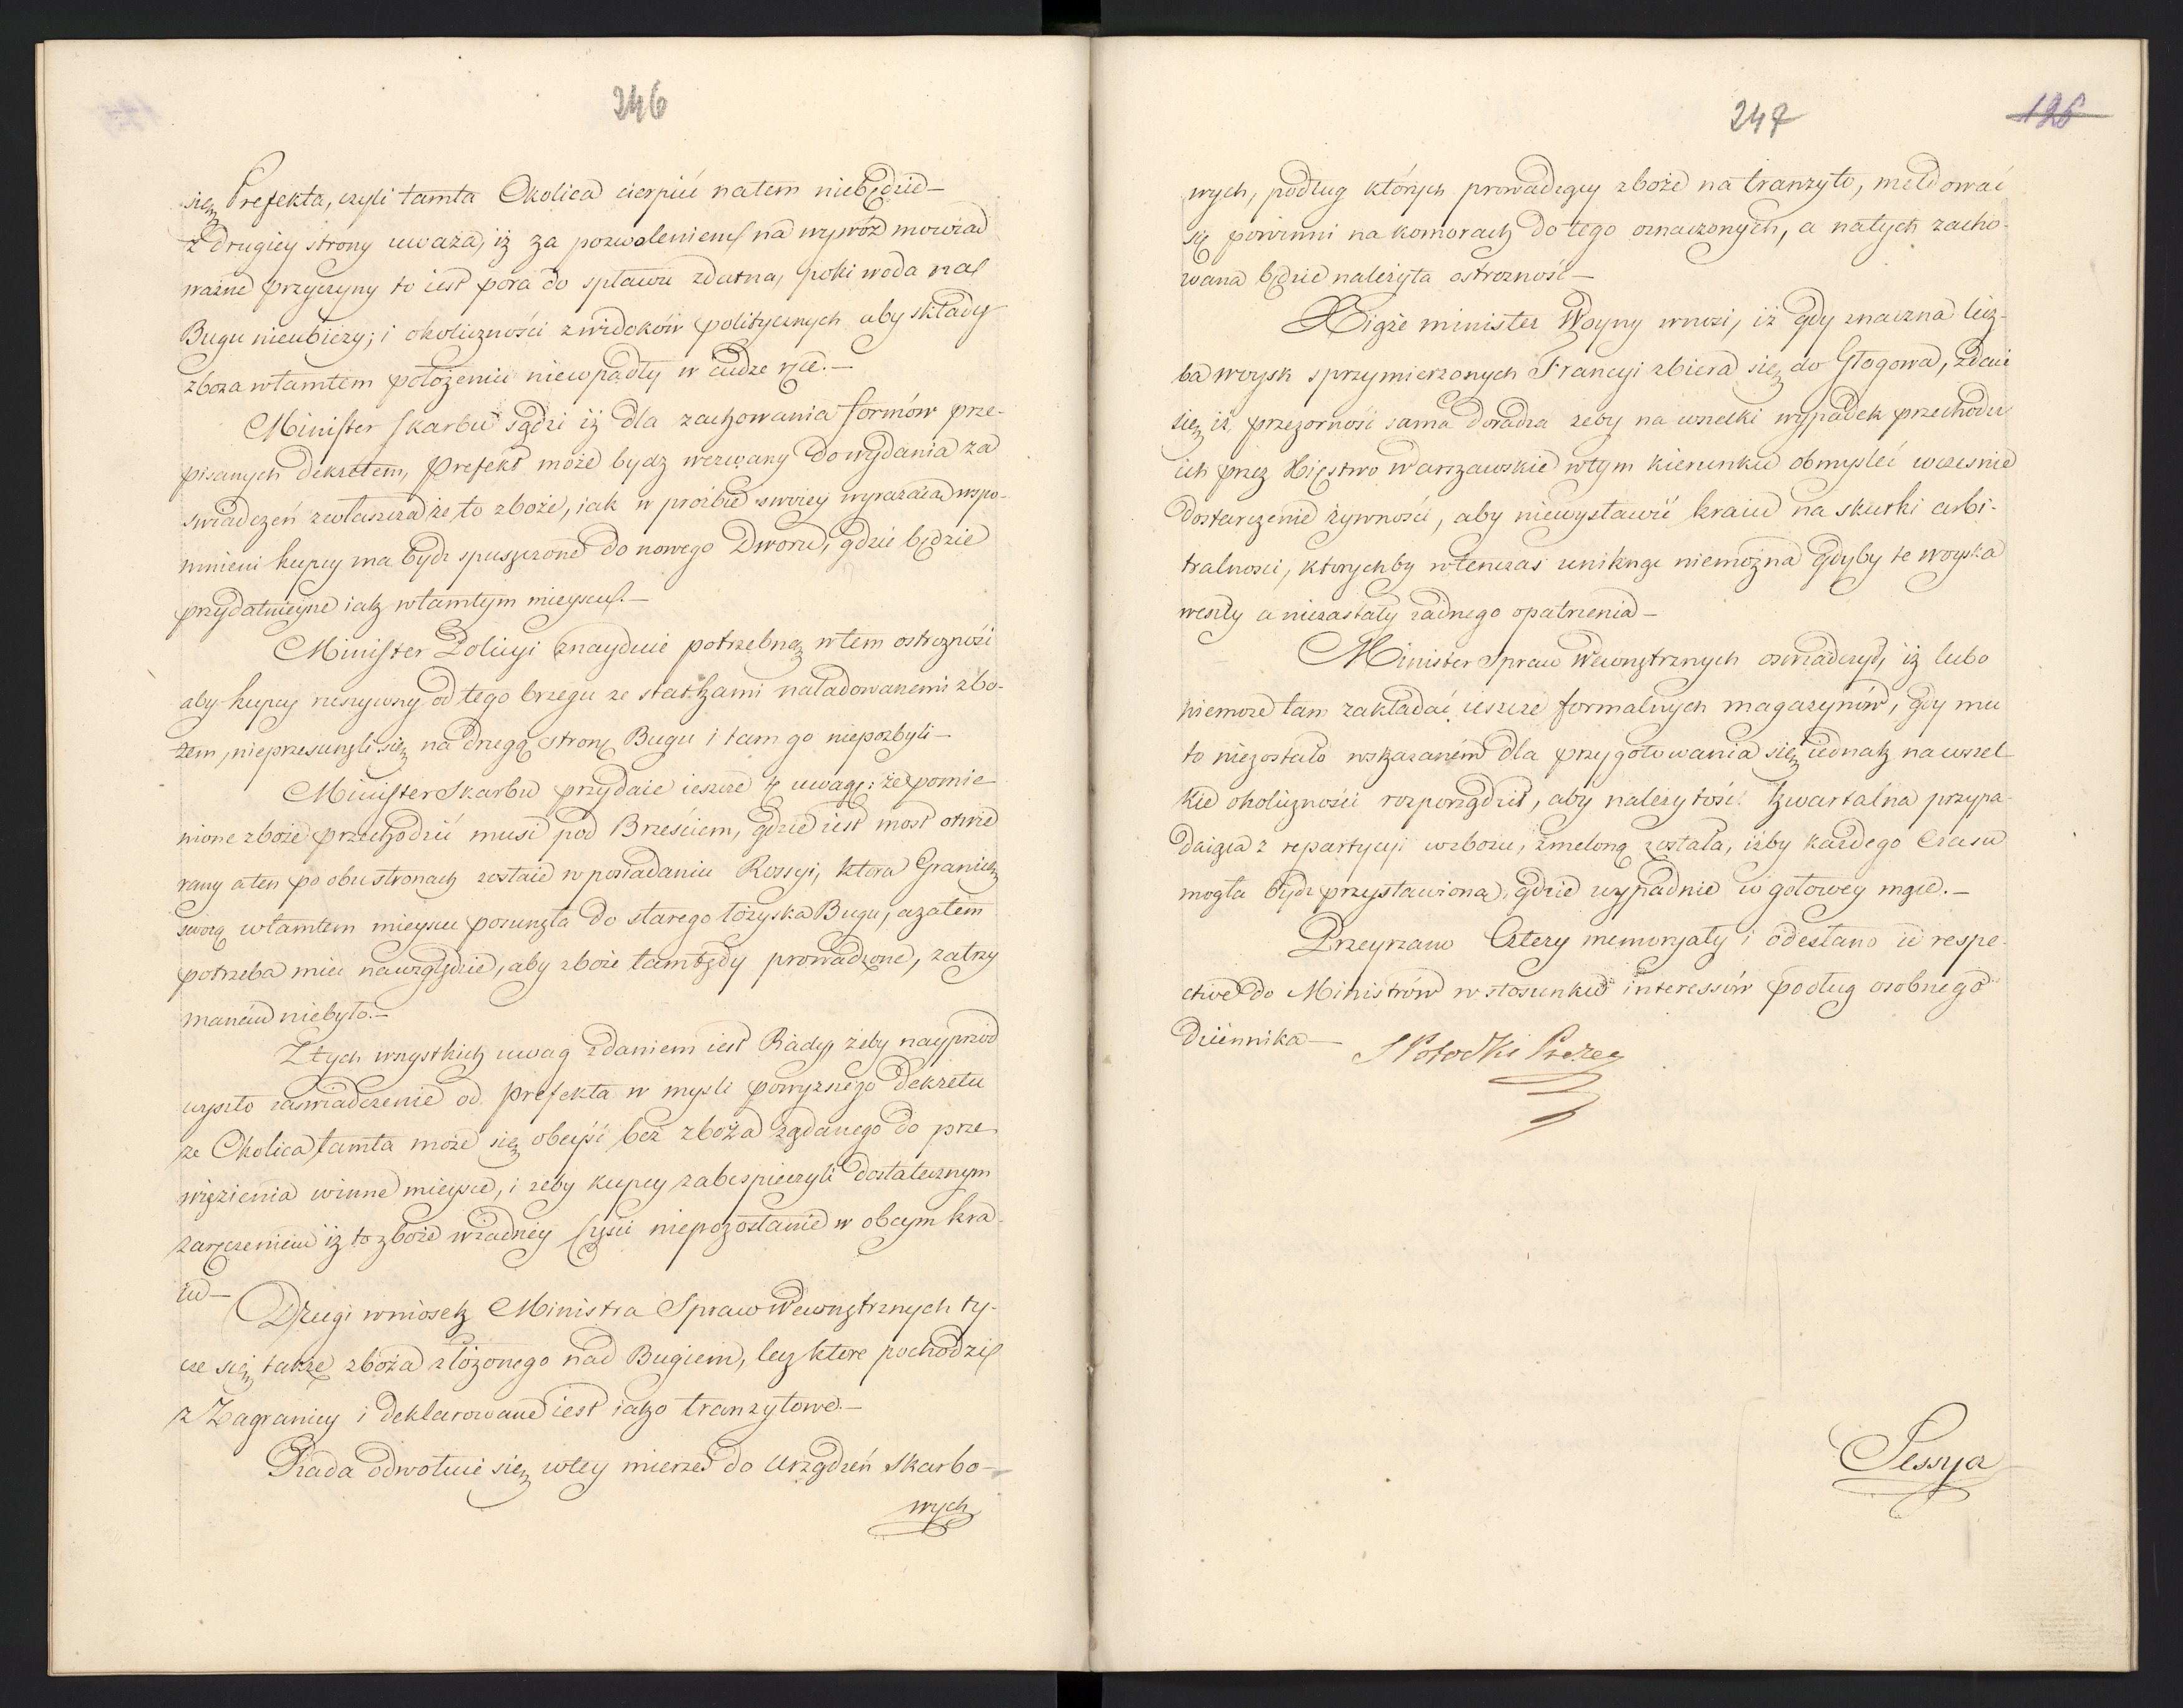 246
się Prefekta, czyli tamta Okolica cierpieć natem niebędzie—
z drugiey strony uważa, iż za pozwoleniem na wywóz mowią
ważne przyczyny to iest pora do spławu zdatna, poki woda na
Bugu nieubieży; i okoliczności z widoków politycznych aby składy
zboża wtamtem położeniu niewpadły w cudze ręce.—
Minister Skarbu sądzi iż dla zachowania formów prze-
pisanych dekretem, Prefekt może bydz wezwany do wydania za
swiadczeń zwłaszcza że to zboże, iak w prośbie swoiey wyrażaią wspo-
mnieni kupcy ma bydz spuszczone do nowego Dworu, gdzie będzie
przydatnieysze iak wtamtym mieyscu.—
Minister Policyi znayduie potrzebną wtem ostrożność
aby kupcy ruszywszy od tego brzegu ze statkami naładowanemi zbo-
żem, nieprzesunęli się na drugą stronę Bugu i tam go niepozbyli—
Minister Skarbu przydaie ieszcze tę uwagę: że pomie-
nione zboże przechodzić musi pod Brześciem, gdzie iest most otwie
rany aten po obu stronach zostaie w posiadaniu Rossyi, ktora Granicę
swoią wtamtem mieyscu posunęła do starego łożyska Bugu, azatem
potrzeba mieć nawzględzie, aby zboże tamtędy prowadzone, zatrzy
maném niebyło.—
Z tych wszystkich uwag zdaniem iest Rady, żeby nayprzód
wyszło zaswiadczenie od Prefekta w mysli powyższego dekretu
że Okolica tamta może się obeyść bez zboża żądanego do prze-
wiezienia winne mieysce, i żeby kupcy zabespieczyli dostatecznym
zaręczeniem iż to zboże wżadney części niepozostanie w obcym kra-
iu—
Drugi wniosek Ministra Spraw Wewnętrznych ty-
cze się także zboża złożonego nad Bugiem, lecz ktore pochodzi
z Zagranicy i deklarowane iest iako tranzytowe.—
Rada odwołuie się wtey mierze do Urządzeń Skarbo—
wych
247
126
wych, podług których prowadzący zboże na tranzyto, meldować
się powinni na komorach do tego oznaczonych, a natych zacho-
wana będzie należyta ostrożność—
Xiąże minister Woyny wnosi, iż gdy znaczna licz-
ba woysk sprzymierzonych Francyi zbiera się do Głogowa, zdaie
się iż przezorność sama doradza żeby na wszelki wypadek przechodu
ich przez Xięstwo Warszawskie wtym kierunku obmysleć wcześnie
dostarczenie żywności, aby niewystawić kraiu na skutki arbi-
tralności, ktorychby wtenczas uniknąć niemożna gdyby te woyska
weszły a niezastały żadnego opatrzenia—
Minister Spraw Wewnętrznych oswiadczył, iż lubo
niemoże tam zakładać ieszcze formalnych magazynów, gdy mu
to niezostało wskazaném dla przygotowania się iednak na wszel
kie okoliczności rozporządził, aby należytość kwartalna przypa-
daiąca z repartycyi wzbożu, zmeloną została, iżby każdego czasu
mogła bydz przystawiona, gdzie wypadnie w gotowey mące.—
Przeyrzano Cztery memoryały i odesłano ie respe-
ctive do Ministrów w stosunku interessów podług osobnego
dziennika—
S Potocki Prezes
Sessya